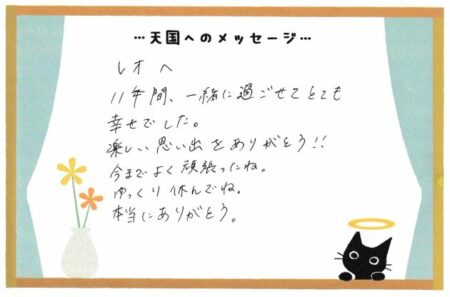 …天国へのメッセージ…
レオへ
11年間、一緒に過ごせてとても
幸せでした。
楽しい思い出をありがとう!!
今までよく頑張ったね。
ゆっくり休んでね。
本当にありがとう。